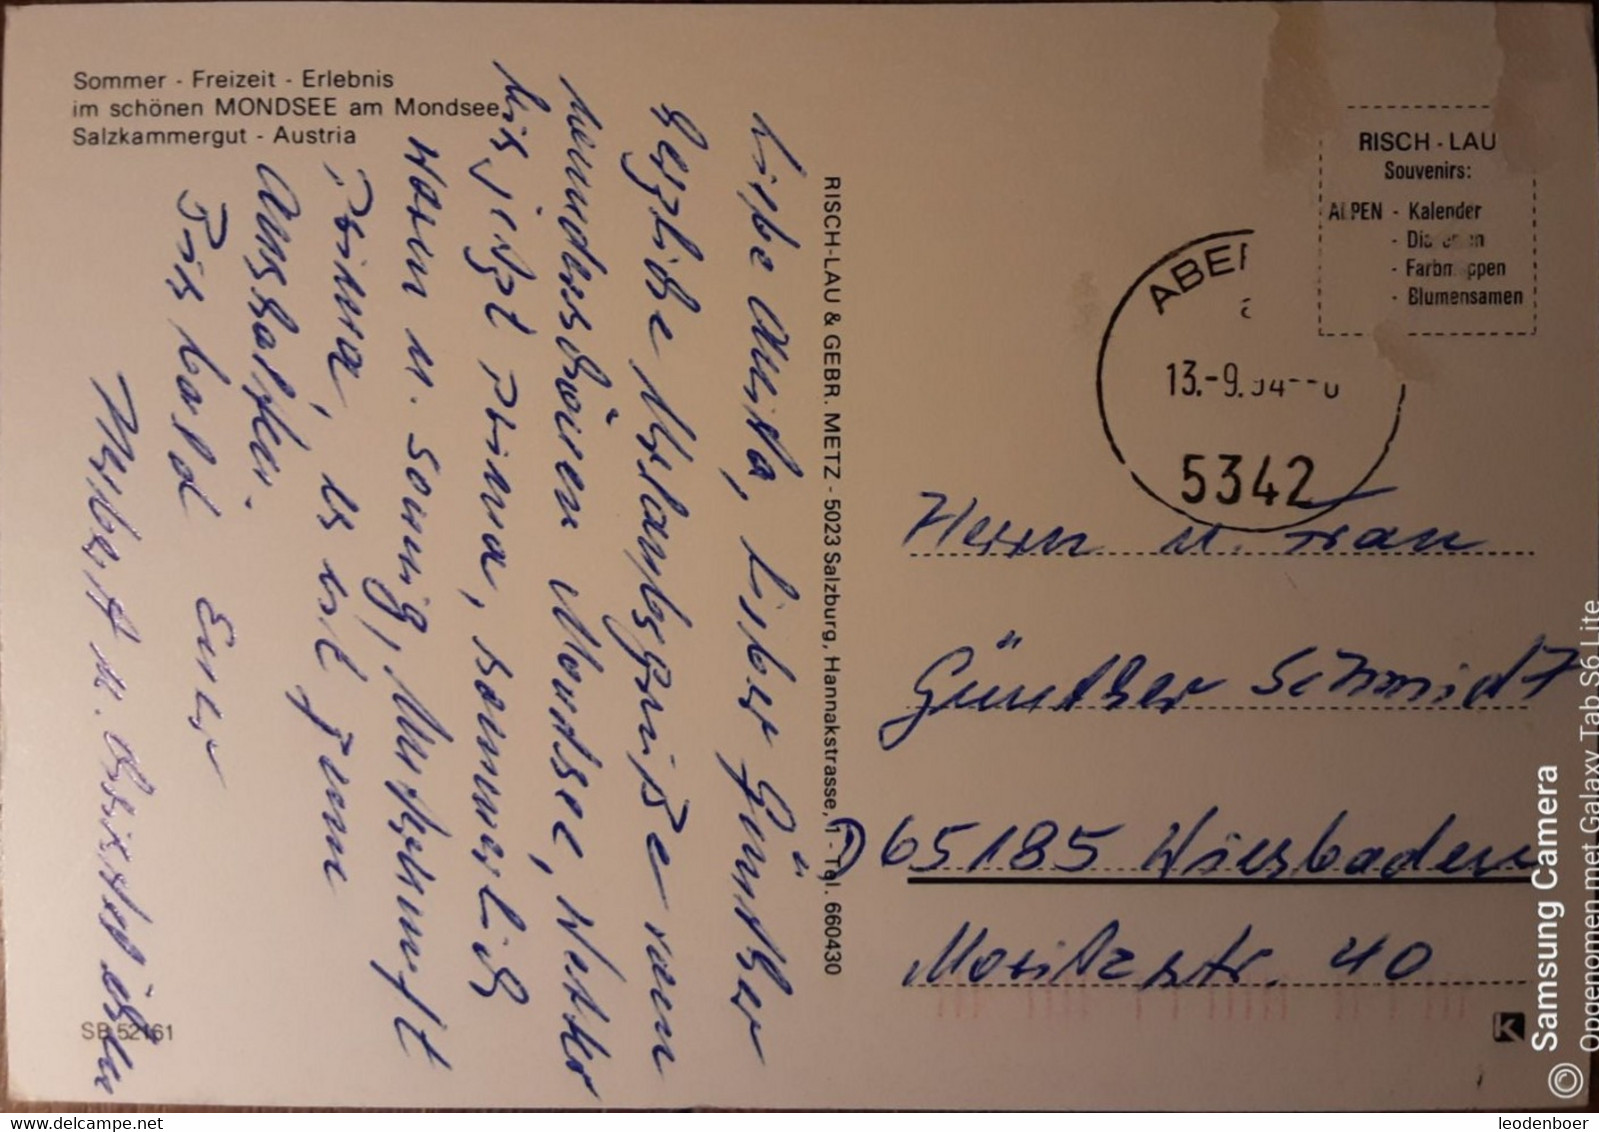 Sommer - Freizeit - Erlebnis
im schönen MONDSEE am Mondsee,
Salzkammergut - Austria
Liebe Anita, Lieber Günther
Herzliche Urlaubsgrüße vom
wunderschönen Mondsee, Wetter
bis jetzt Prima, sommerlich
warm u. sonnig, Unterkunft
Prima, es ist zum
Aushalten.
Bis bald Euer
Norbert u.
SB 52161
RISCH-LAU & GEBR. METZ - 5023 Salzburg, Hannakstrasse 1 - Tel. 660430
RISCH - LAU
Souvenirs:
ALPEN - Kalender
- Farbmappen
- Blumensamen
13.-9.94
5342
Herrn u. Frau
Günther Schmidt
65185 Wiesbaden
Moritzstr. 40
K
© Samsung Camera
Opgenomen met Galaxy Tab S6 Lite
delcampe.net
leodenboer